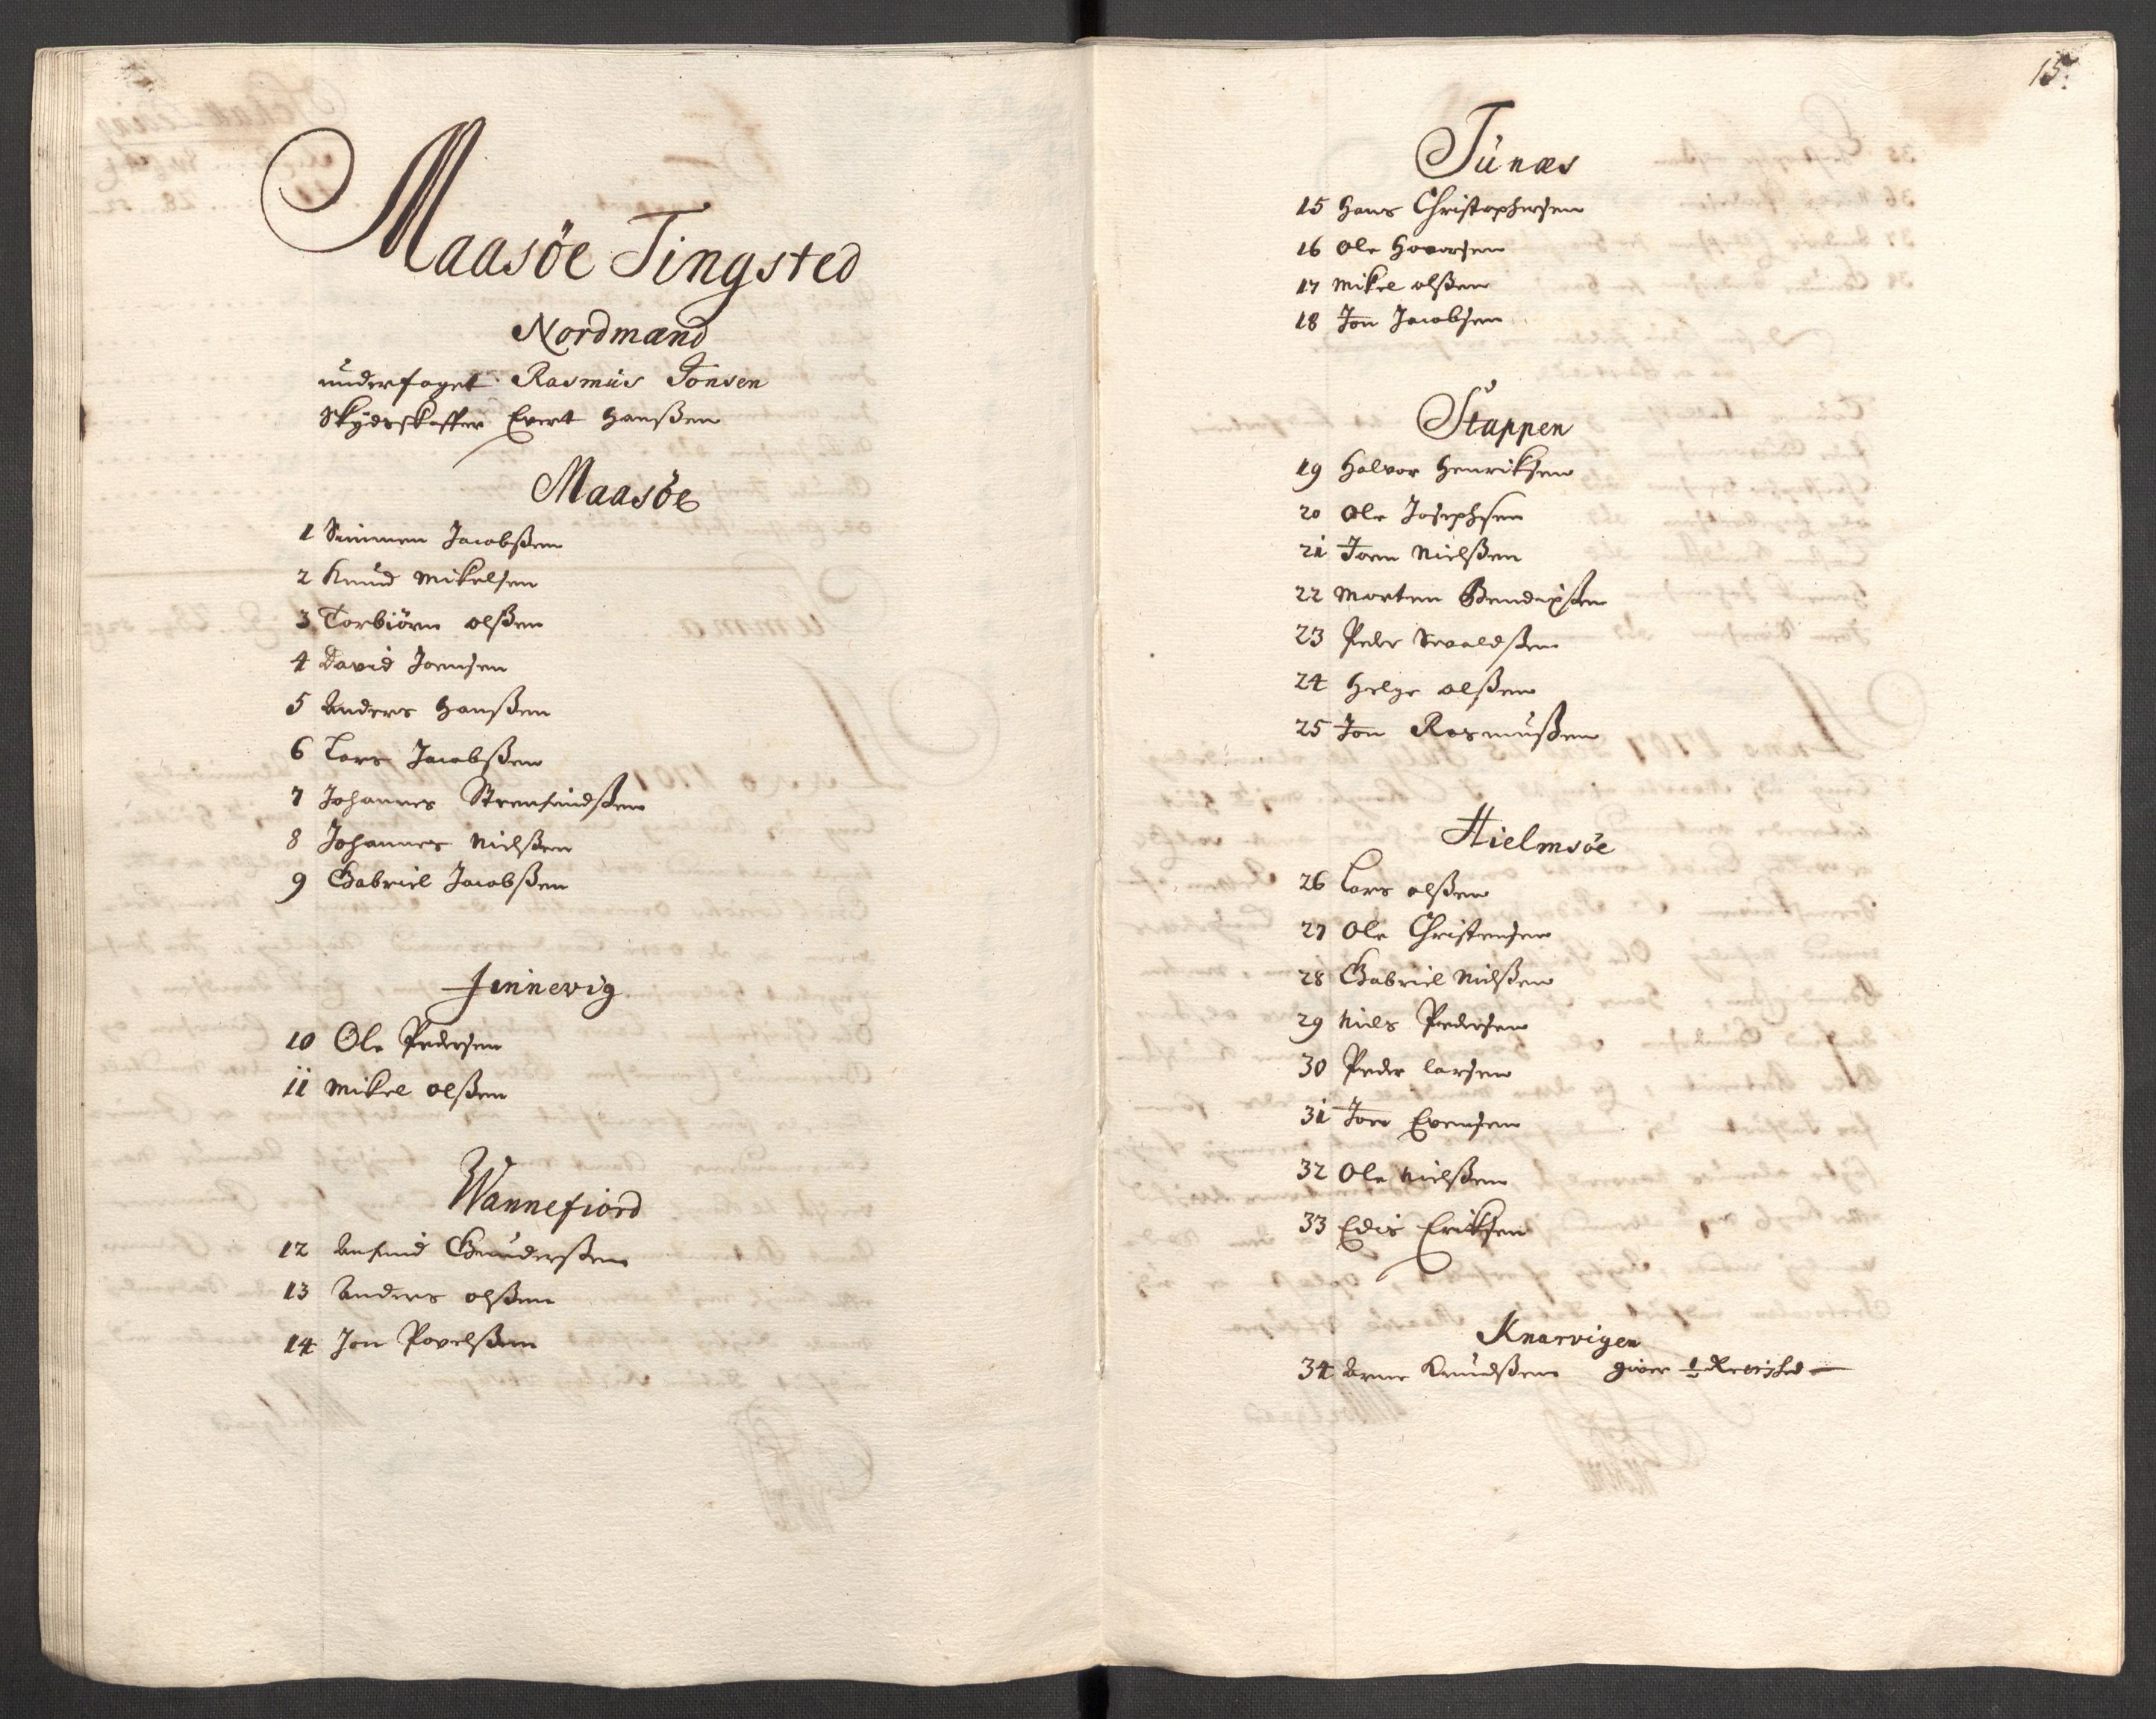 Maasöe Tingsted
Nordmænd
underfoget Rasmus Jonsen
Skydsskaffer Evert Hanßen
Maasöe
1 Simmen Jacobßen
2 Knud Mikelsen
3 Torbiörn olßen
4 David Joensen
5 Anders Hanßen
6 Lars Jacobßen
7 Johannes
8 Johannes Nielßen
9 Gabriel Jacobßen
Finnevig
10 Ole Pedersen
11 Mikel olßen
Wannefiord
12 Anfind Gundersßen
13 Anders olßen
14 Jon Povelßen
15
Tunæs
15 Hans Christophersen
16 Ole Havorsen
17 Mikel olßen
18 Jon Jacobsen
Stappen
19 Halvor Henriksen
20 Ole Josephsen
21 Joen Nielßen
22 Morten Bendixßen
23 Peder
24 Helge olßen
25 Jon Rasmußen
Hielmsöe
26 Lars olßen
27 Ole Christensen
28 Gabriel Nielßen
29 Niels Pedersen
30 Peder Larsen
31 Joen Evensen
32 Ole Nielßen
33 Edis Eriksen
Knarvigen
34 Arne Knudßen giver ½